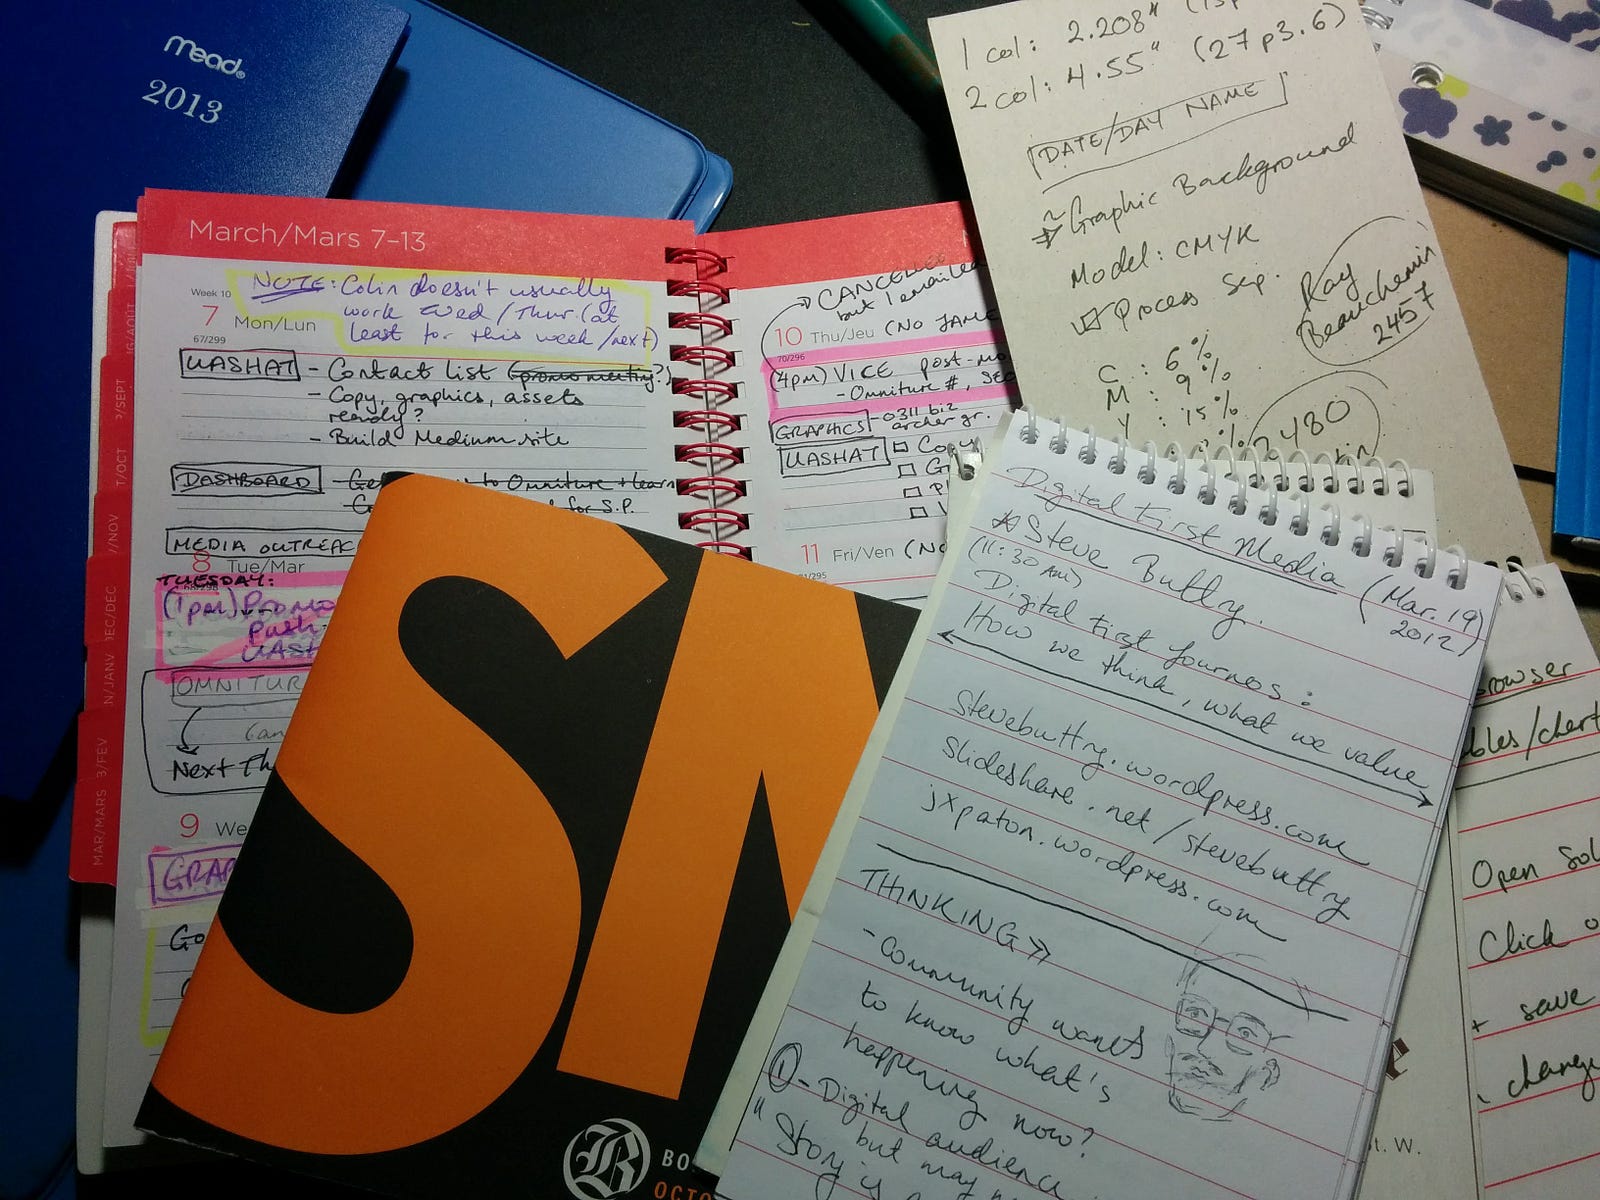 mead
2013
March/Mars 7–13
Week 10
7 Mon/Lun
67/299
NOTE: Colin doesn't usually
work Wed/Thur. (at
least for this week/next)
UASHAT - Contact list (promo meeting?)
- Copy, graphics, assets
ready?
- Build Medium site
DASHBOARD
to Omniture + learn
for S.P.
MEDIA OUTREAC
8 Tue/Mar
TUESDAY:
(1pm) PROMO
Push
UASH
OMNITUR
Next Th
9 We
GRAP
Go
SEPT
T/OCT
/NOV
DEC
N/JANV
3/FEV
MAR/MARS
CANCELLED
but I emailed
10 Thu/Jeu (NO JAMC
70/296
(4pm) VICE post-mo
- Omniture #, SEO
GRAPHICS - 0311 biz
archer gr.
UASHAT
11 Fri/Ven (No
1 col: 2.208"
2 col: 4.55" (27p3.6)
DATE/DAY NAME
Graphic Background
Model: CMYK
Process Sep.
Ray
Beauchemin
2457
C : 6%
M : 9%
Y : 15%
2480
SN
R
BO
OCTO
Digital First Media (Mar. 19,
2012)
* Steve Buttry.
(11:30 AM)
Digital First Journos:
How we think, what we value
stevebuttry.wordpress.com
slideshare.net/stevebuttry
jxpaton.wordpress.com
THINKING >>
- Community wants
to know what's
happening now?
① - Digital audience
but may n
"Story is
rowser
bles/chart
Open Sol
Click o
+ save
change
t. W.